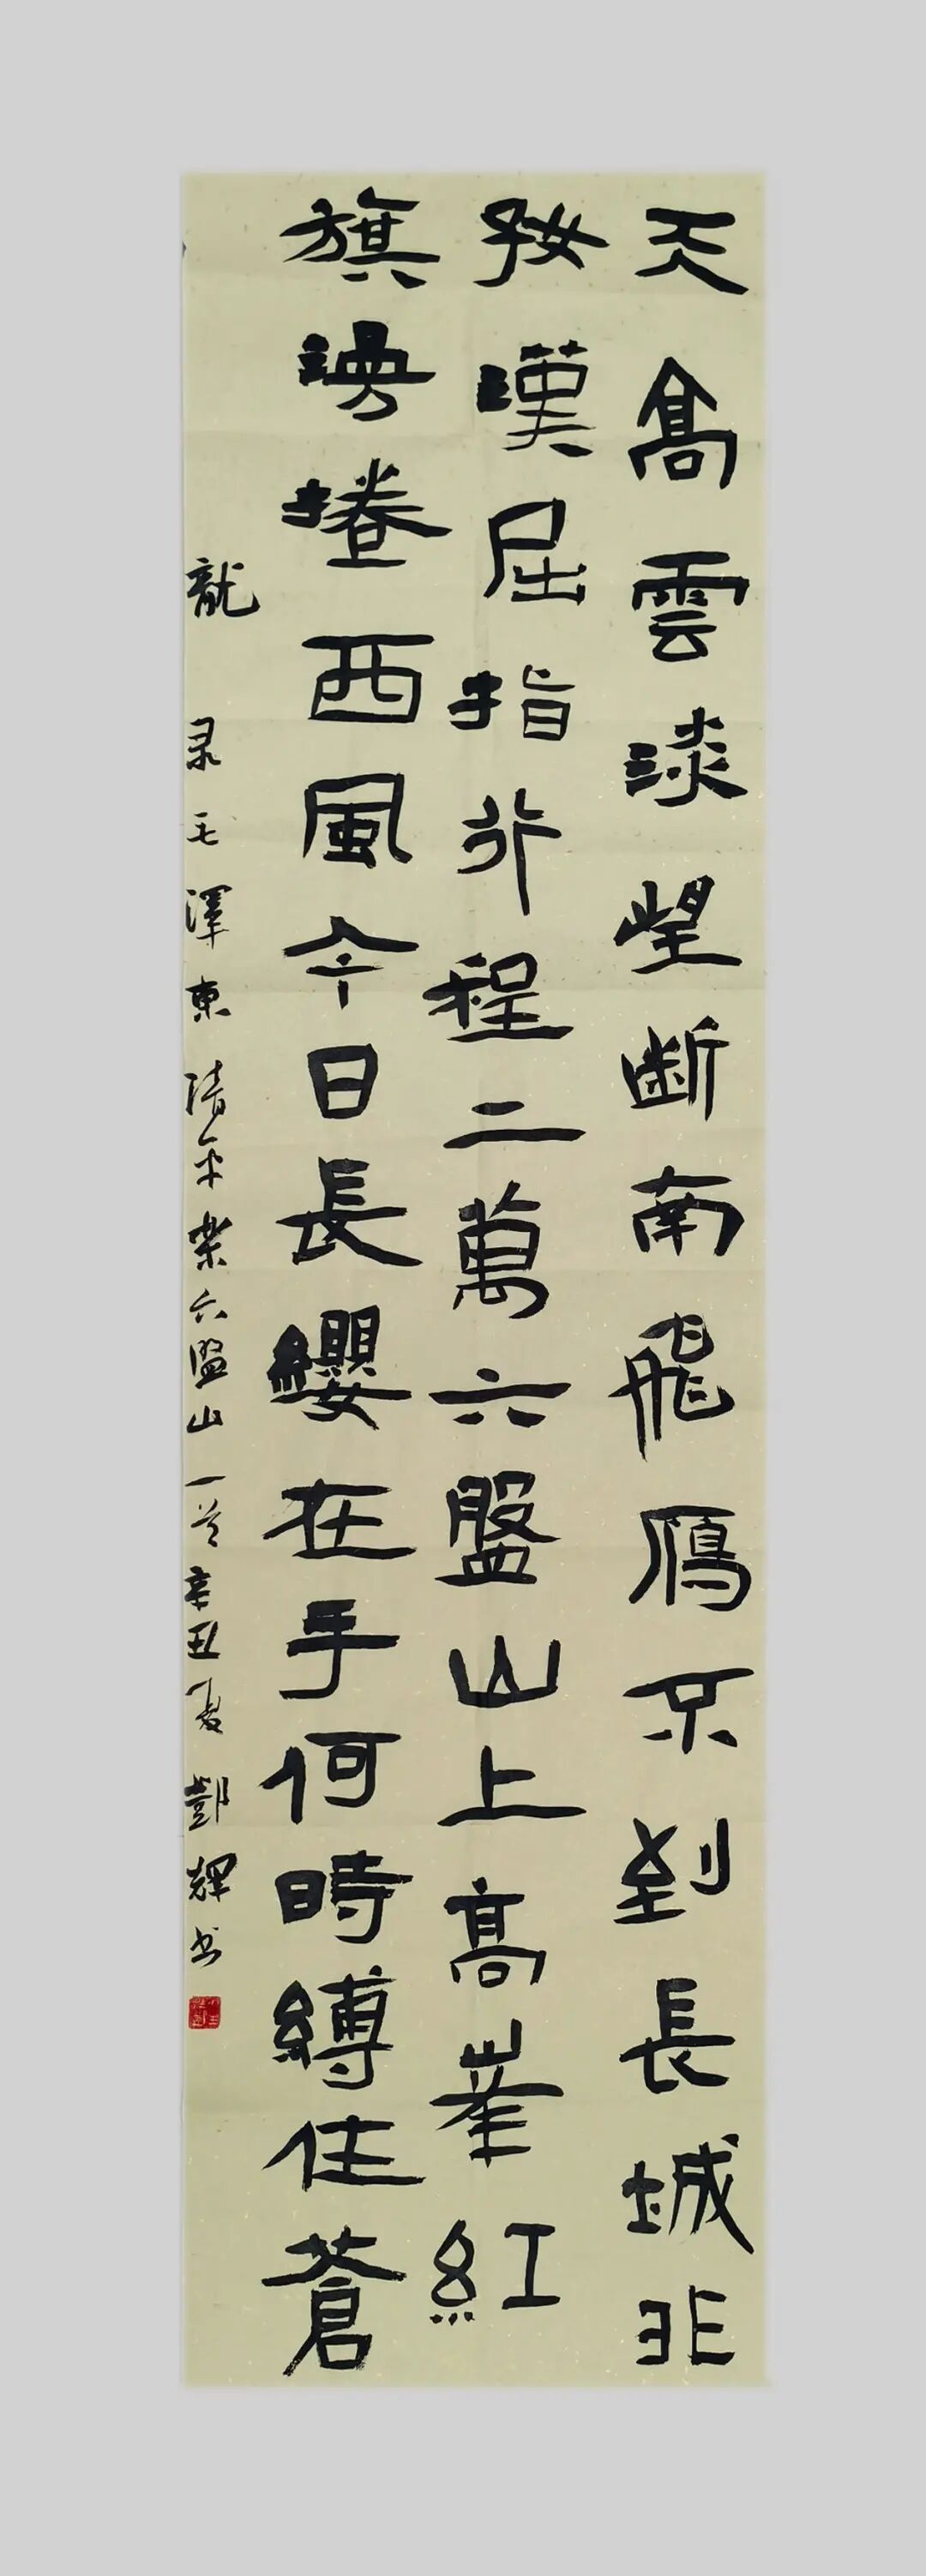 天高雲淡望斷南飛鴈不到長城非
好漢屈指行程二萬六盤山上高峯紅
旗漫捲西風今日長纓在手何時縛住蒼
龍 录毛澤東清平樂六盤山一首辛丑夏鄧輝书